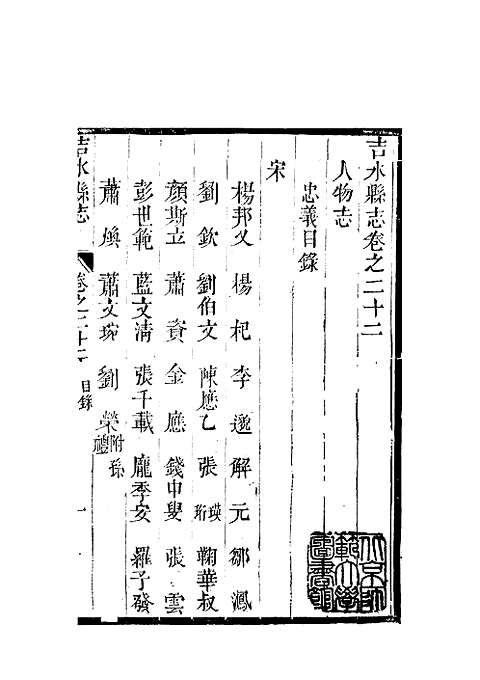 吉水縣志卷之二十二
人物志
忠義目錄
宋
楊邦乂 楊杞 李邈 解元 鄒鳳
劉欽 劉伯文 陳應乙 張瑛珩 鞠華叔
顏斯立 蕭資 金應 錢申叟 張雲
彭世範 藍文清 張千載 龐季安 羅子發
蕭煥 蕭文琬 劉榮附孫禮
吉水縣志 卷之二十二 目錄 一
北京師範大學圖書館